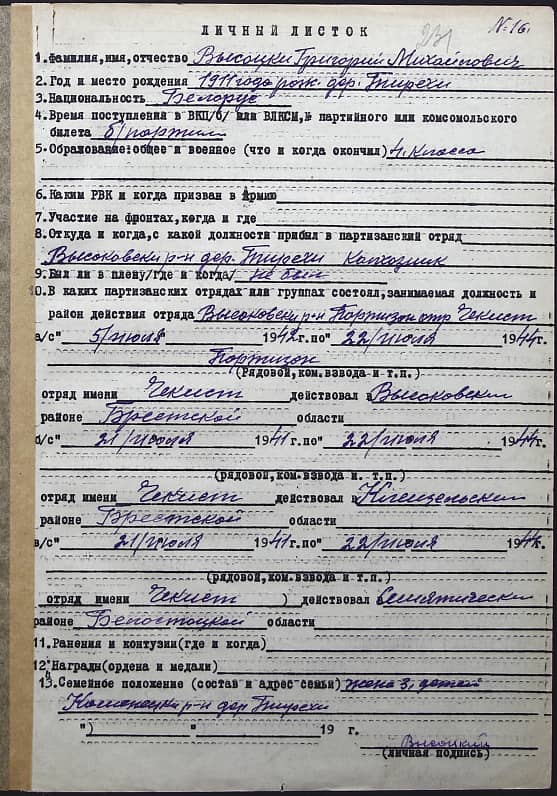 № 16.
231
ЛИЧНЫЙ ЛИСТОК
1. Фамилия, имя, отчество Высоцки Григорий Михайлович
2. Год и место рождения 1911 года рож. дер. Тиречи
3. Национальность Белорус
4. Время поступления в ВКП/б/ или ВЛКСМ, № партийного или комсомольского
билета б/партии
5. Образование: общее и военное (что и когда окончил) 4 класса
6. Каким РВК и когда призван в Армию
7. Участие на фронтах, когда и где
8. Откуда и когда, с какой должности прибыл в партизанский отряд
Высоковски р-н дер. Тиречи колхозник
9. Был ли в плену/где и когда/ не был
10. В каких партизанских отрядах или группах состоял, занимаемая должность и
район действия отряда Высоковски р-н Портизон отр Чекист
а/с" 5/июля 1942 г. по" 22/июля 1944 г.
Портизон
(Рядовой, ком. взвода и т.п.)
отряд имени Чекист действовал в Высоковски
районе Брестской области
б/с" 21/июля 1941 г. по" 22/июля 1944 г.
(рядовой, ком. взвода и. т.п.)
отряд имени Чекист действовал в Клещельски
районе Брестской области
в/с" 21/июля 1941 г. по" 22/июля 1944 г.
(рядовой, ком. взвода и т.п.)
отряд имени Чекист ) действовал Семятически
районе Белостоцкой области
11. Ранения и контузии (где и когда)
12. Награды (ордена и медали)
13. Семейное положение (состав и адрес семьи) жена 3, детей
р-н дер Тиречи
") " 19 г.
Высоцкий
(личная подпись)